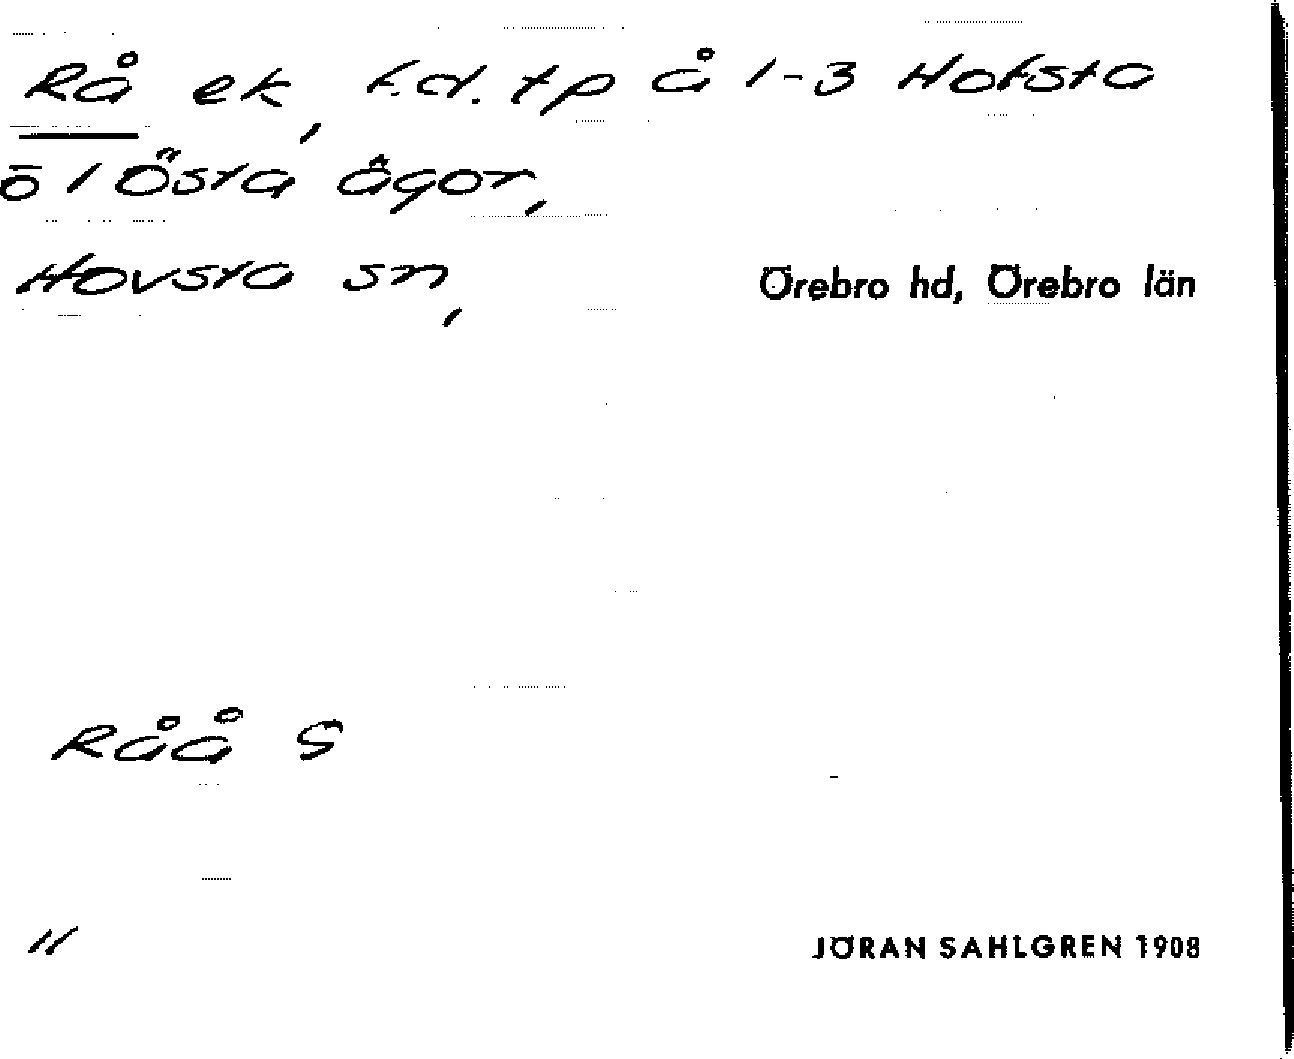 Rå ek, f.d. tp å 1-3 Hofsta
o 1 Östa ägor,
Hovsta sn, Örebro hd, Örebro län
Råå S
" JÖRAN SAHLGREN 1908